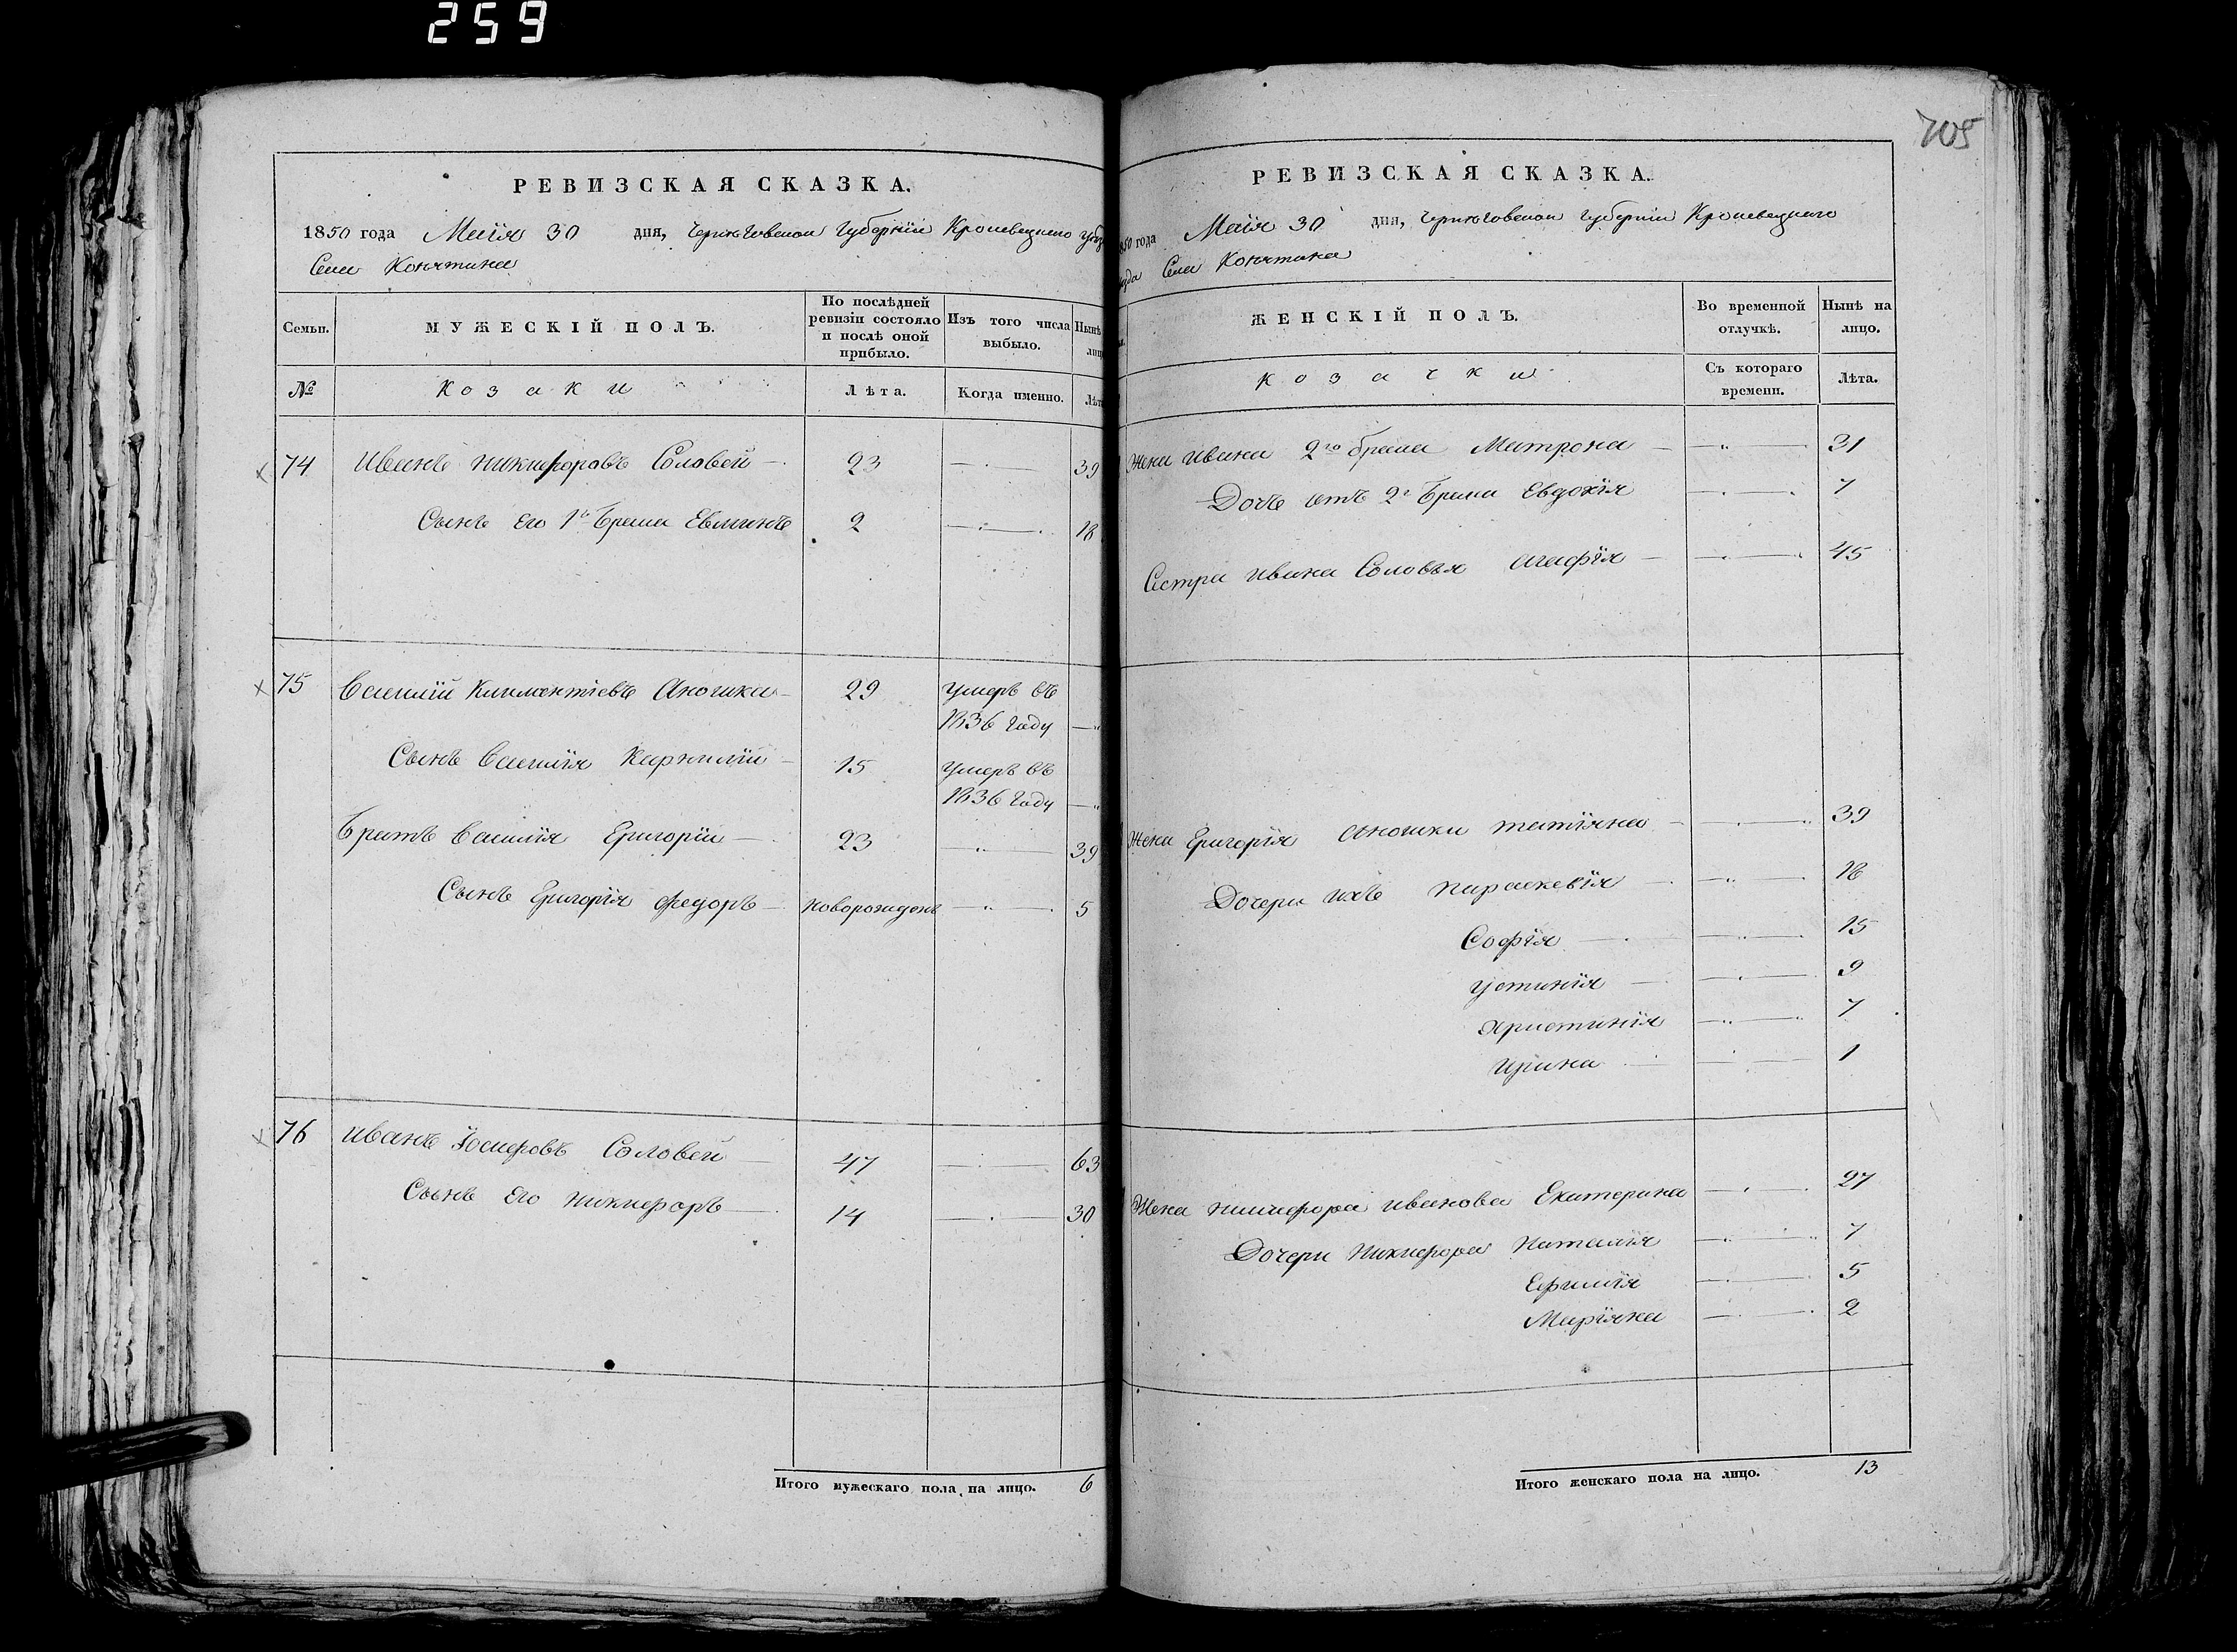 259
705
РЕВИЗСКАЯ СКАЗКА.
1850 года Маія 30 дня, Черниговской Губерніи Кролевецкаго уѣз
Села Конятина
Семьи.
МУЖЕСКІЙ ПОЛЪ.
По послѣдней ревизіи состояло и послѣ оной прибыло.
Изъ того числа выбыло.
Нынѣ лиц
№
Козаки
Лѣта.
Когда именно.
Лѣт
74 Иванъ Никифоровъ Соловей 23 39
Сынъ его 1го брака 2 18
75 Василій Климентіевъ Аношка 29 умеръ въ
1836 году
Сынъ Василія Корнилій 15 умеръ въ
1836 году
Братъ Василія Григорій 23 39
Сынъ Григорія Федоръ новорожденъ 5
76 Иванъ Іосифовъ Соловей 47 63
Сынъ его Никифоръ 14 30
Итого мужескаго пола на лицо. 6
РЕВИЗСКАЯ СКАЗКА.
850 года Маія 30 дня, Черниговской губерніи Кролевецкаго
ѣзда Села Конятина
ЖЕНСКІЙ ПОЛЪ.
Во временной отлучкѣ.
Нынѣ на лицо.
Козачки
Съ котораго времени.
Лѣта.
Жена Ивана 2го брака Матрона 31
Дочь отъ 2г брака Евдокія 7
Сестра Ивана Соловья Агафія 45
Жена Григорія Аношки Татіяна 39
Дочери ихъ Параскевія 18
Софія 15
Устинія 9
Христинія 7
Ирина 1
Жена Никифора Иванова Екатерина 27
Дочери Никифора Наталія 7
Ефимія 5
Маріяна 2
Итого женскаго пола на лицо. 13